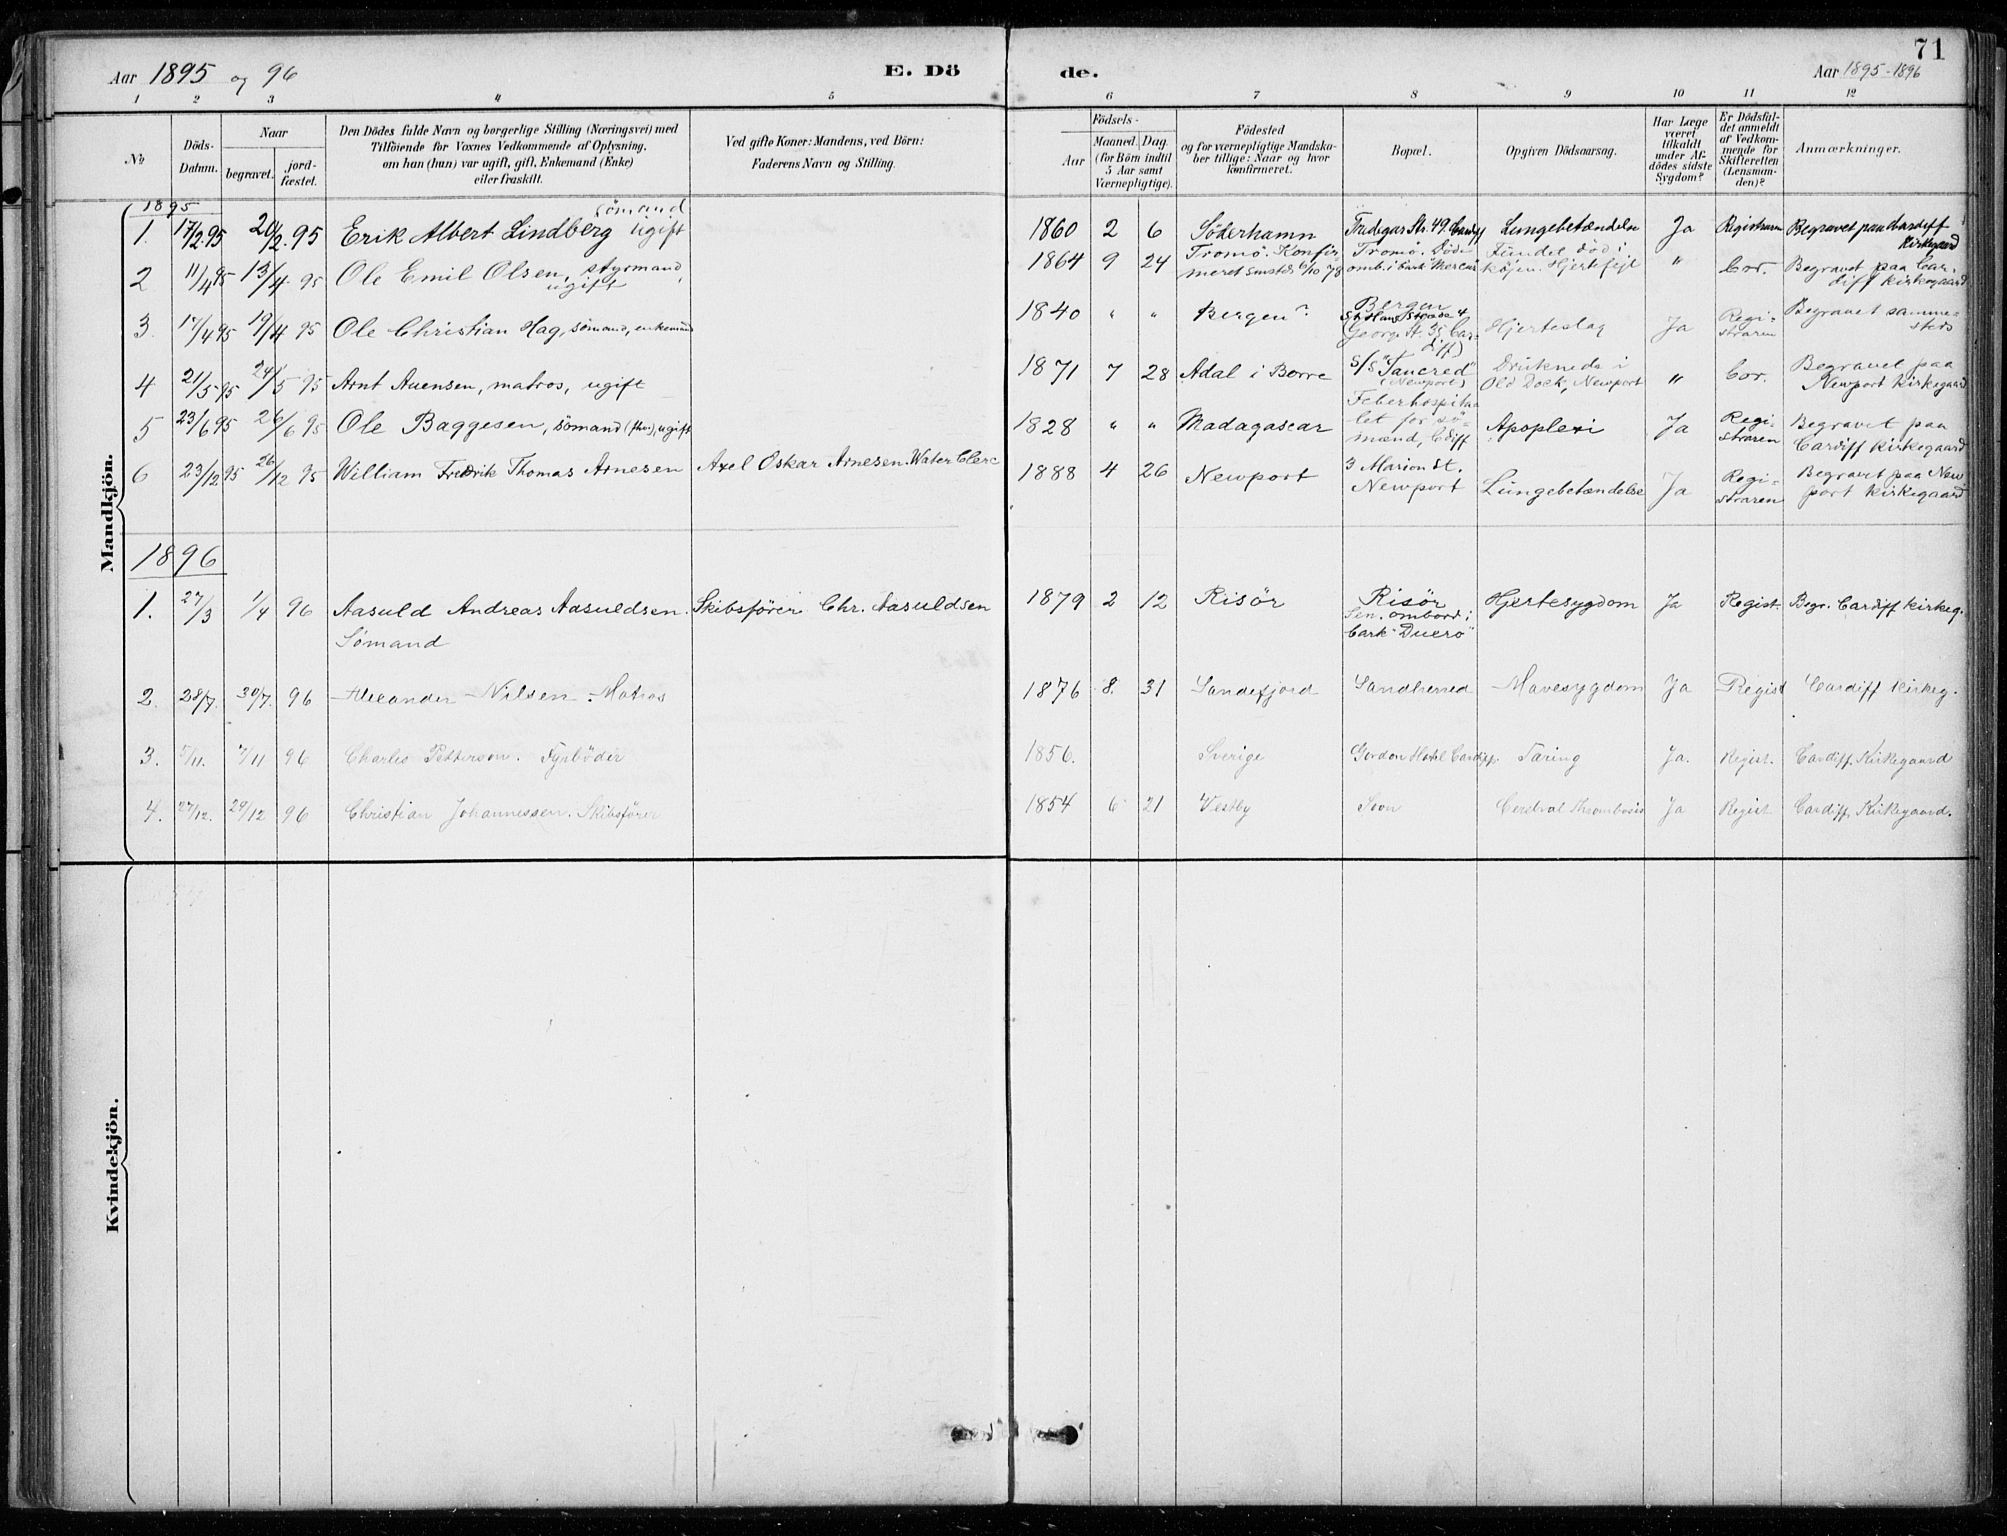 71
Aar 1895 og 96 E. Dö de. Aar 1895-1896
1 2 3 4 5 6 7 8 9 10 11 12
No
Döds-Datum.
Naar
begravet.
jord-fæstet.
Den Dödes fulde Navn og borgerlige Stilling (Næringsvei) med
Tilföiende for Voxnes Vedkommende af Oplysning,
om han (hun) var ugift, gift, Enkemand (Enke)
eller fraskilt.
Ved gifte Koner: Mandens, ved Börn:
Faderens Navn og Stilling.
Födsels-
Aar
Maaned. Dag
(for Börn indtil
5 Aar samt
Værnepligtige).
Födested
og for værnepligtige Mandska-
ber tillige: Naar og hvor
konfirmeret.
Bopæl.
Opgiven Dödsaarsag.
Har Læge
været
tilkaldt
under Af-
dödes sidste
Sygdom?
Er Dödsfal-
det anmeldt
af Vedkom-
mende for
Skifteretten
(Lensman-
den)?
Anmærkninger.
Mandkjön.
1895
1. 17/2 95 20/2 95 Erik Albert Lindberg sömand ugift 1860 2 6 Söderhamn Tredegar Str. 49. Cardiff Lungebetændelse Ja Registraren Begravet paa Cardiff Kirkegaard
2 11/4 95 13/4 95 Ole Emil Olsen, styrmand, ugift 1864 9 24 Tromö. Konfirmeret smsteds 6/10 78 Tromö. Död omb. i bark "Mercur" Fundet död i köjen. Hjertefejl " Cor. Begravet paa Cardiff Kirkegaard
3. 17/4 95 19/4 95 Ole Christian Hag, sömand, enkemand 1840 " " Bergen? Bergen St Hans Stræde 4 (George St. 35 Cardiff) Hjerteslag Ja Registraren Begravet sammesteds
4 21/5 95 24/5 95 Arnt Auensen, matros, ugift 1871 7 28 Adal i Borre S/S "Tancred" (Newport) Druknede i Old Dock, Newport " Cor. Begravet paa Newport Kirkegaard
5 23/6 95 26/6 95 Ole Baggesen, sömand (fhv.), ugift 1828 " " Madagascar Feberhospitalet for sömænd, Cdiff Apoplexi Ja Registraren Begravet paa Cardiff Kirkegaard
6 23/12 95 26/12 95 William Fredrik Thomas Arnesen Axel Oskar Arnesen. Water Clerc 1888 4 26 Newport 3 Marion St. Newport Lungebetændelse Ja Registraren Begravet paa Newport Kirkegaard
1896
1. 27/3 1/4 96 Aasuld Andreas Aasuldsen. Sömand Skibsförer Chr. Aasuldsen 1879 2 12 Risör Risör Sen. ombord i bark "Duero" Hjertesygdom Ja Regist. Begr. Cardiff Kirkeg.
2. 28/7. 30/7. 96 Alexander Nilsen. Matros 1876 8. 31 Sandefjord Sandherred Mavesygdom Ja Regist Cardiff Kirkeg.
3. 5/11. 7/11 96 Charles Petterson. Fyrböder 1856. Sverige Gordon Hotel Cardiff. Tæring Ja. Regist. Cardiff. Kirkegaard
4. 27/12. 29/12 96 Christian Johannessen. Skibsförer 1854 6 21 Vestby Soon Cerebral Thrombosis Ja Regist Cardiff. Kirkegaard.
Kvindekjön.